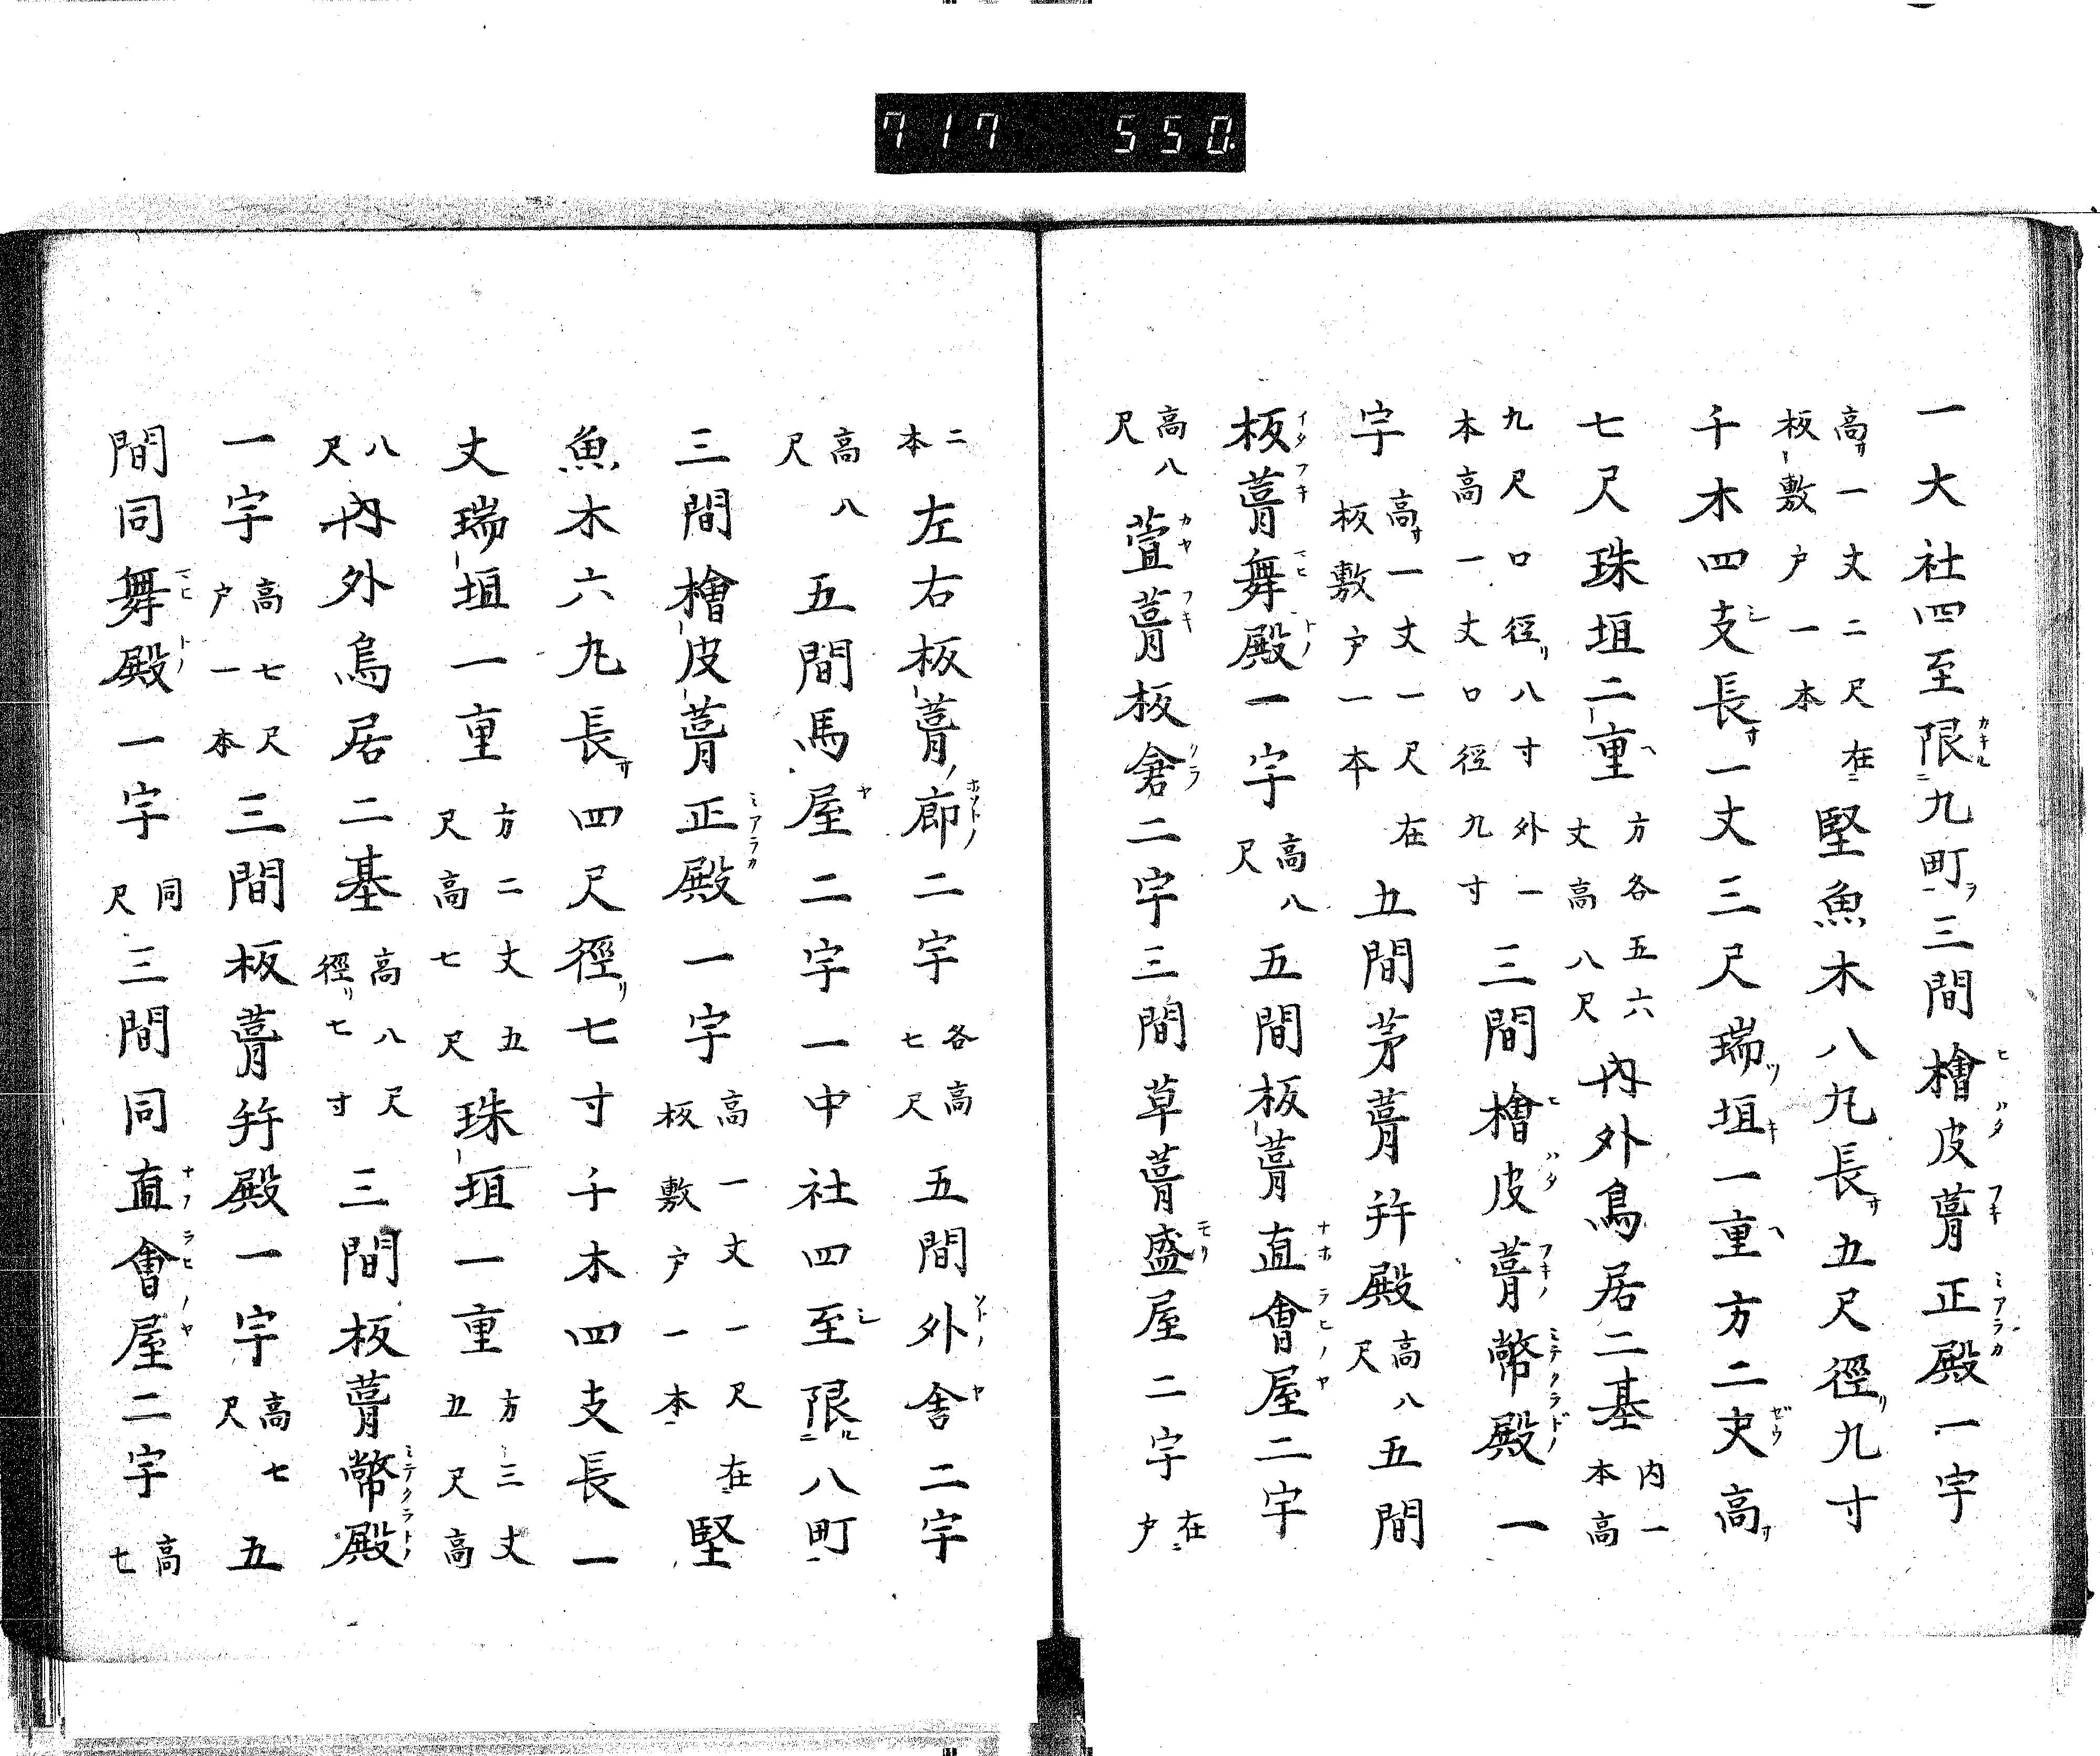 717 550
一大社四至限九町三間檜皮葺正殿一宇
高一丈二尺在板敷戸一本堅魚木八丸長五尺徑九寸
千木四支長一丈三尺瑞垣一重方二丈高
七尺珠垣二重方各五六丈高八尺內外鳥居二基内一本高
九尺口徑八寸外一本高一丈口徑九寸三間檜皮葺幣殿一
宇高一丈一尺在板敷戸一本五間茅葺幷殿高八尺五間
板葺舞殿一宇高八尺五間板葺直會屋二宇
高八尺萱葺板倉二宇三間草葺盛屋二宇在戸
二本左右板葺廊二宇各高七尺五間外舎二宇
高八尺五間馬屋二宇一中社四至限八町
三間檜皮葺正殿一宇高一丈一尺在板敷戸一本堅
魚木六丸長四尺徑七寸千木四支長一
丈瑞垣一重方二丈五尺高七尺珠垣一重方三丈五尺高
八尺內外鳥居二基高八尺徑七寸三間板葺幣殿
一宇高七尺戸一本三間板葺幷殿一宇高七尺五
間同舞殿一宇同尺三間同直會屋二宇高七